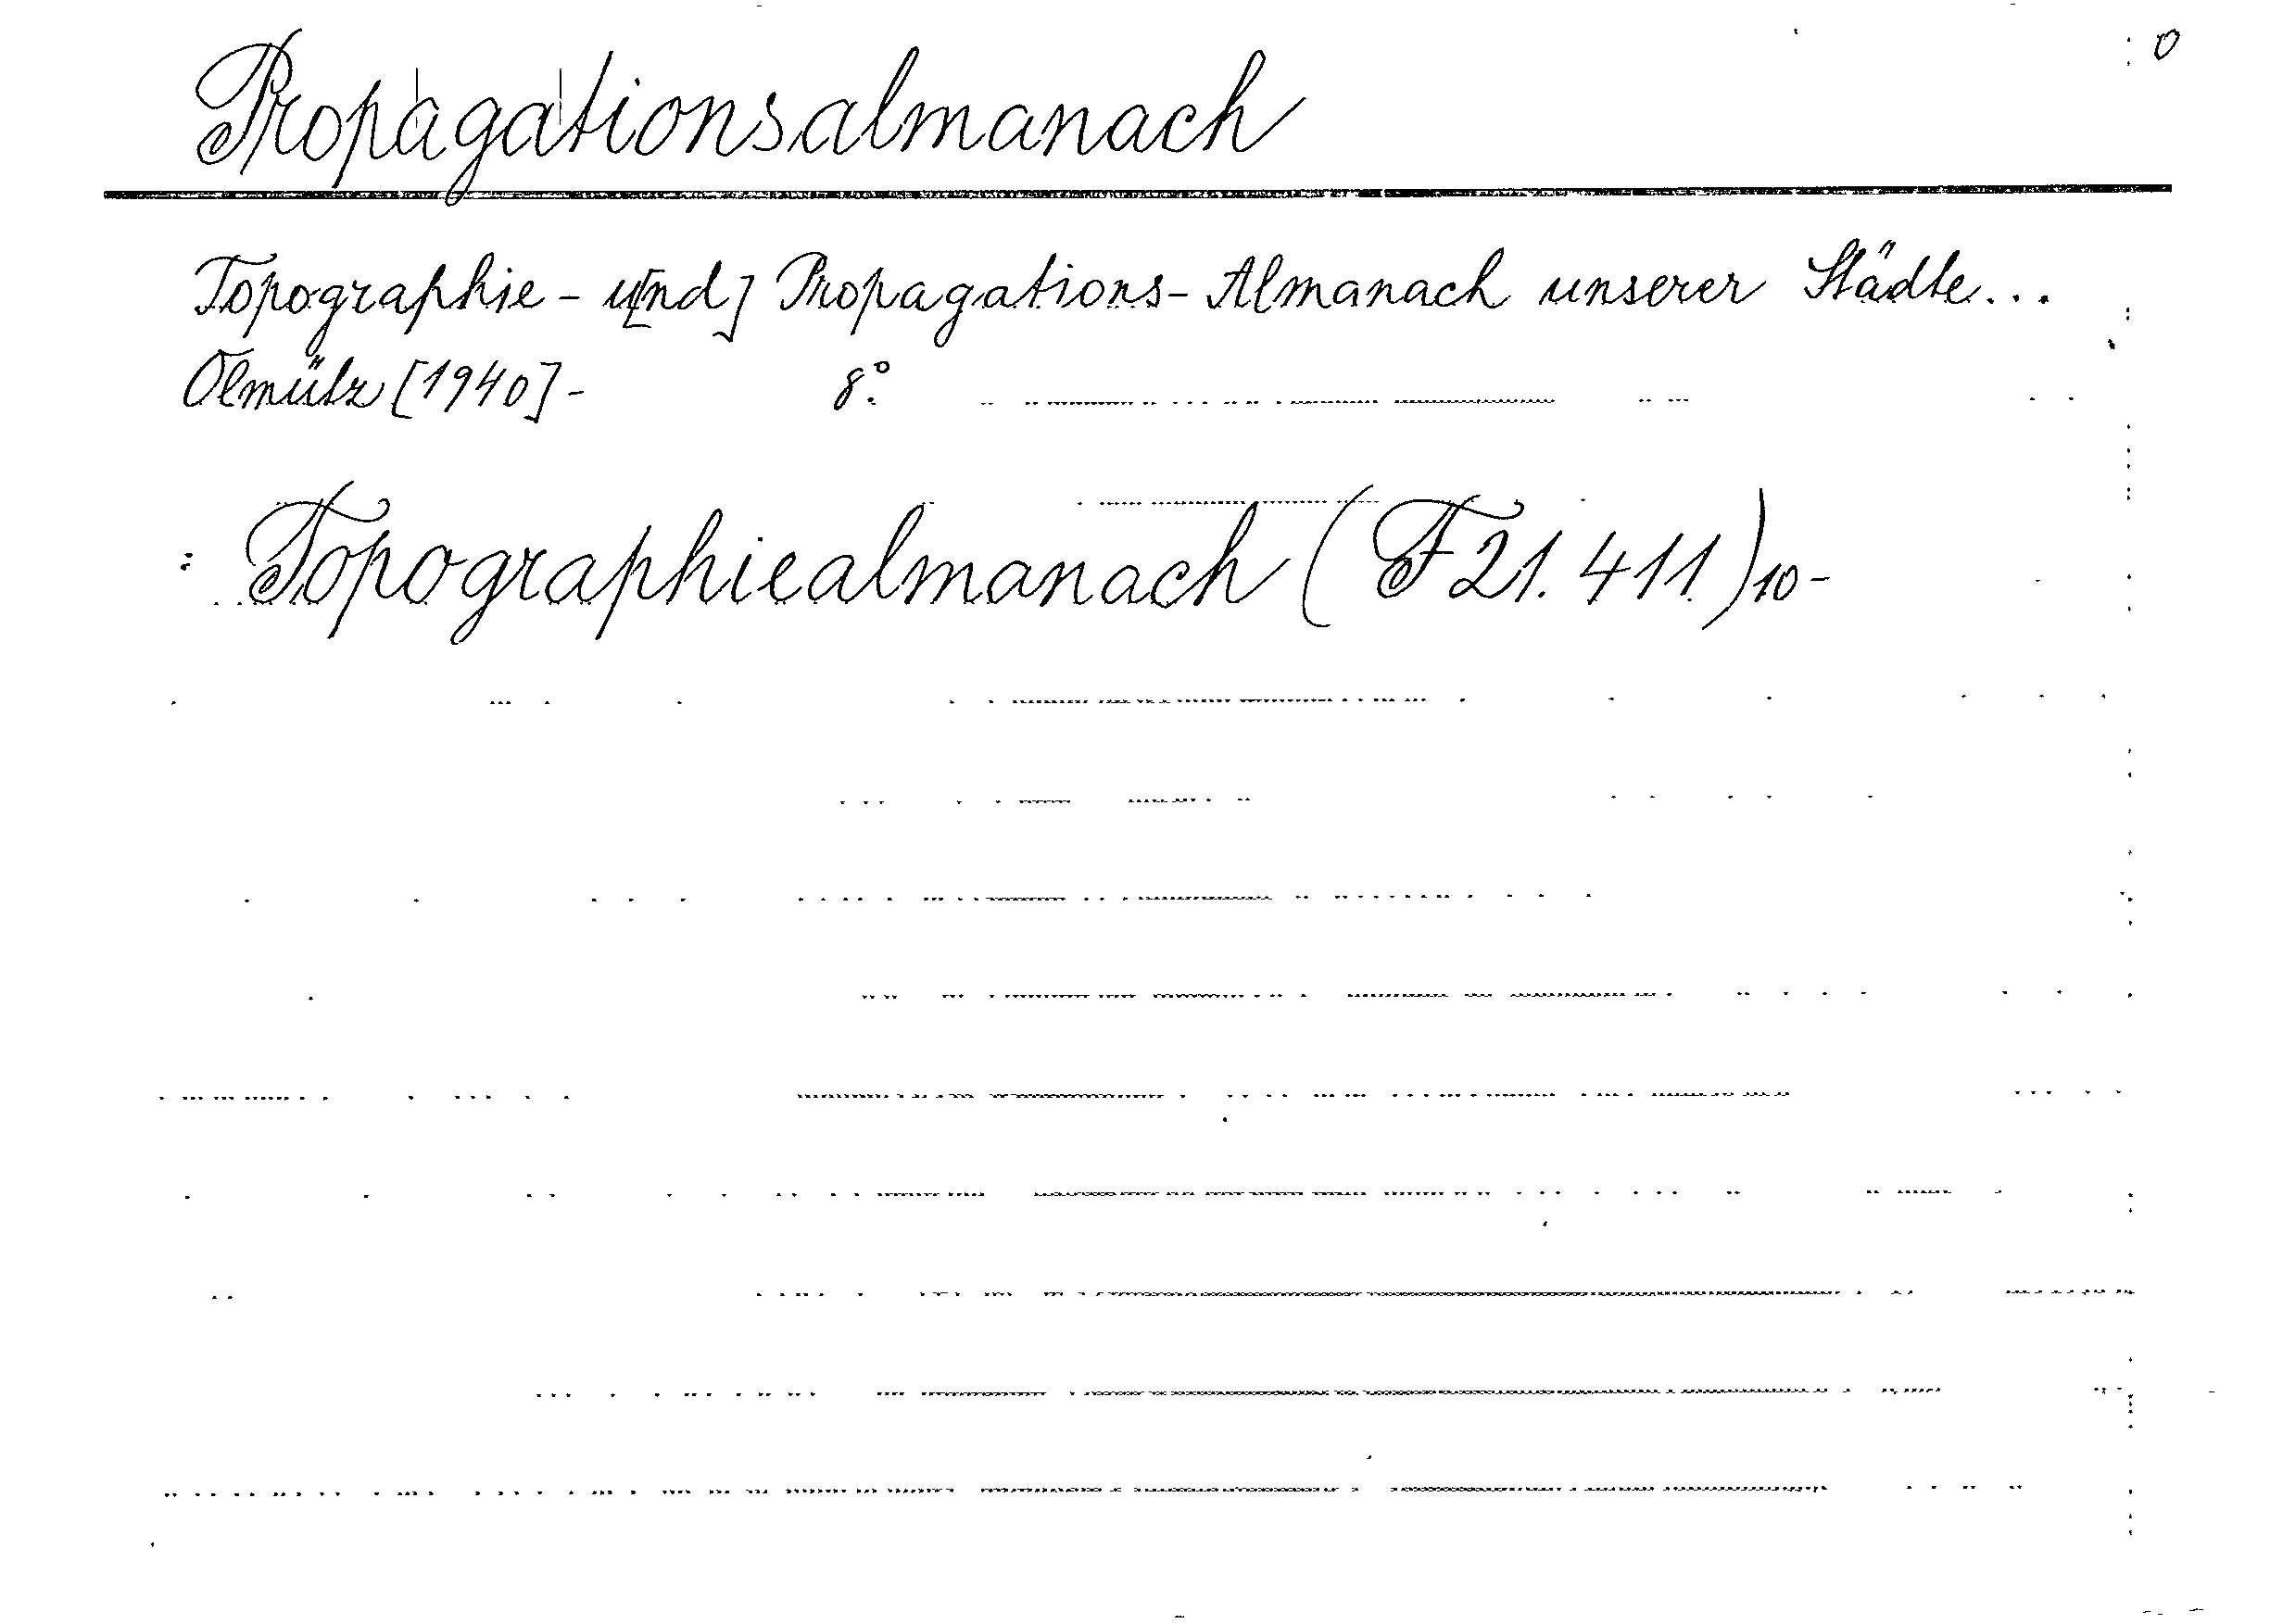 Propagationsalmanach 0
Topographie - u[nd] Propagations - Almanach unserer Städte...
Olmütz [1940] - 8°.
: Topographiealmanach (F 21. 411) 10-